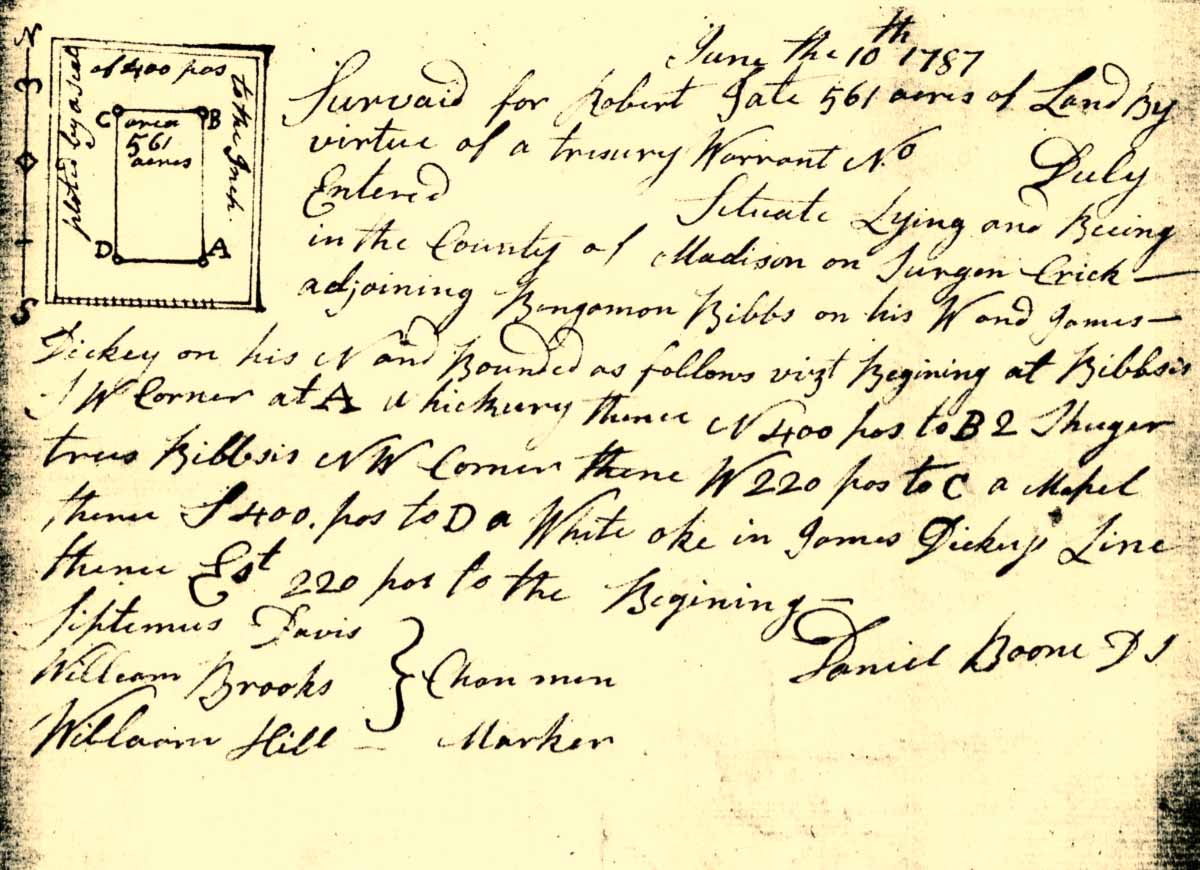 N
S
ploted by a scale
of 400 pos
to the Inch.
C
B
area
561
acres
D
A
June the 10th 1787
Survaid for Robert Tate 561 acres of Land By
virtue of a tresury Warrant No Duly
Entered Situate Lying and Beeing
in the County of Madison on Surgen Crick —
adjoining Bengamon Bibbs on his W and James —
Dickey on his N and Bounded as follows vizt Begining at Bibbsis
S W Corner at A a hickury thence N 400 pos to B 2 Shuger
trees Bibbsis N W Corner thence W 220 pos to C a Mapel
thence S 400. pos to D a White oke in James Dickeys Line
thence Est 220 pos to the Begining —
Siptemus Davis
William Brooks } Chan men
Daniel Boone D S
William Hill — Marker